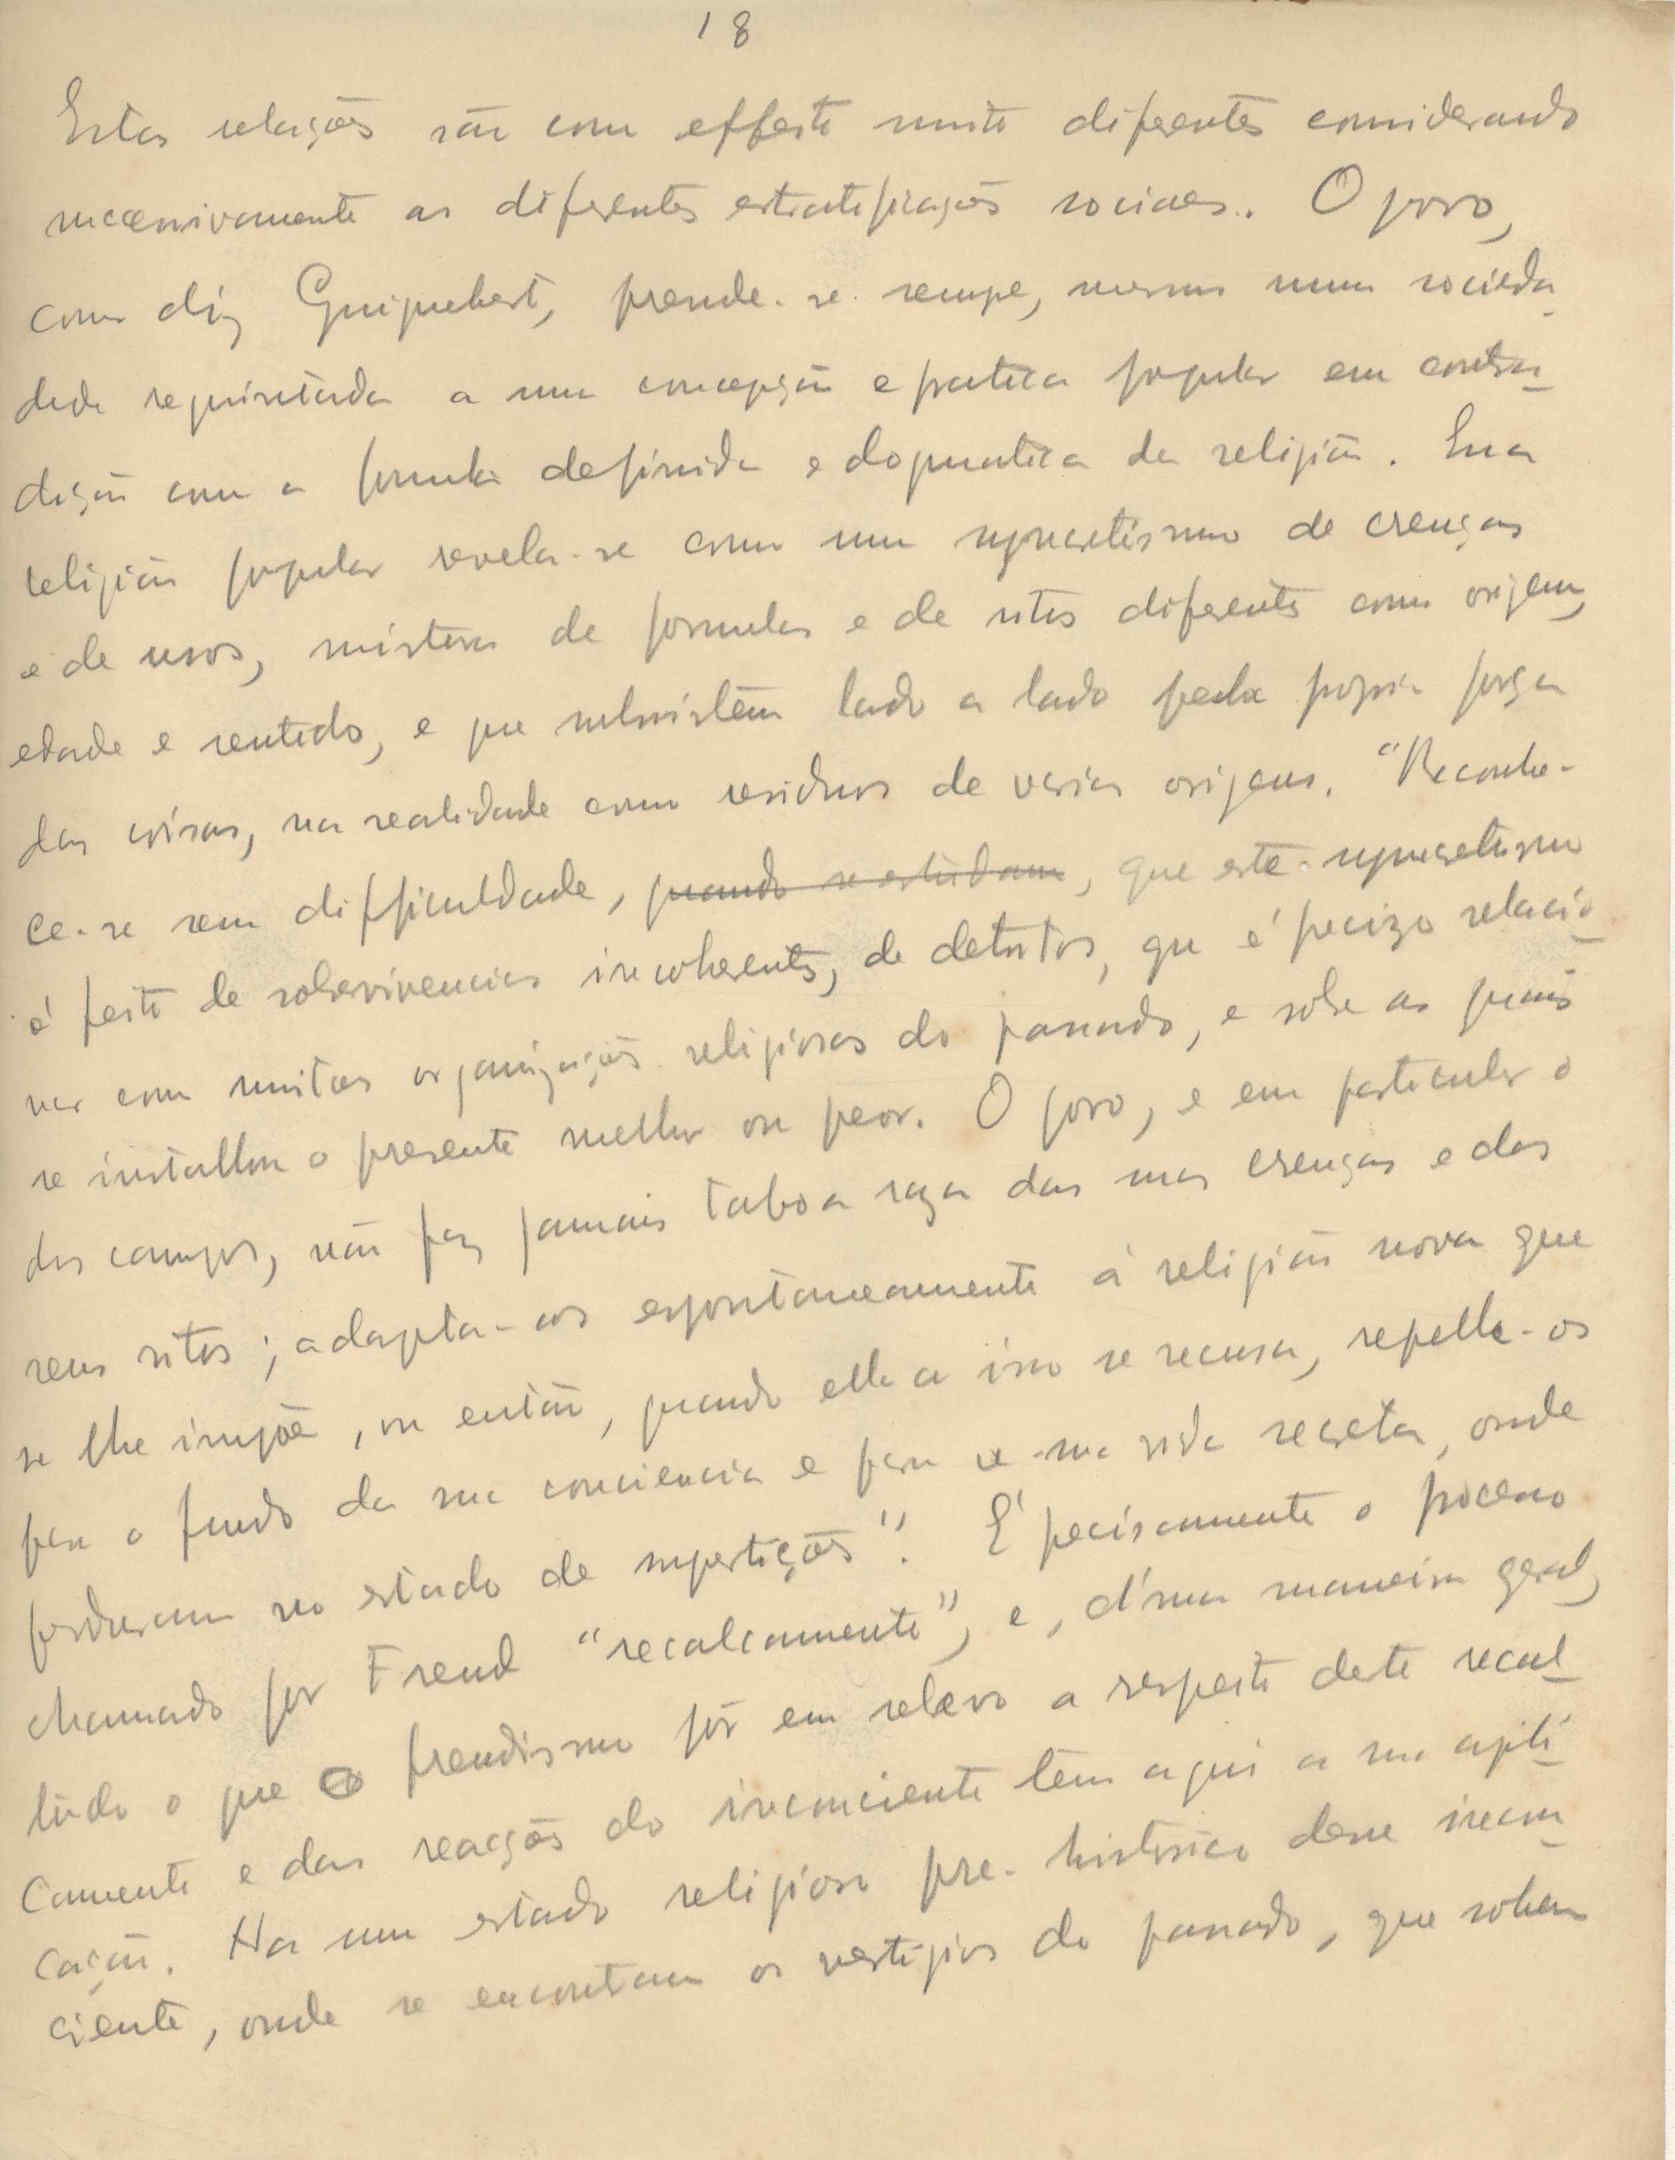 18
Estas relações são com effeito muito diferentes considerando
successivamente as diferentes estratificações sociaes. O povo,
como diz Guignebert, prende-se sempre, mesmo numa socieda
dade requintada a uma concepção e pratica popular em contra
dição com a formula definida e dogmatica da religião. Essa
religião popular revela-se como um syncretismo de crenças
e de usos, mistura de formulas e de ritos diferentes como origem,
edade e sentido, e que subsistem lado a lado pela propria força
das coisas, na realidade como residuos de varias origens. "Reconhe-
ce-se sem difficuldade, quando se estudam, que este syncretismo
é feito de sobrevivencias incoherentes, de detritos, que é precizo relacio
nar com muitas organizações religiosas do passado, e sobre as quais
se installou o presente melhor ou peor. O povo, e em particular o
dos campos, não faz jamais taboa raza das suas crenças e dos
seus ritos; adapta-os espontaneamente á religião nova que
se lhe impõe, ou então, quando ella a isso se recusa, repelle-os
para o fundo da sua consciencia e para a sua vida secreta, onde
perduram no estado de superstições". É precisamente o processo
chamado por Freud "recalcamento", e, d'uma maneira geral,
tudo o que o freudismo pôs em relevo a respeito deste recal
camento e das reacções do inconsciente tem aqui a sua apli
cação. Ha um estado religioso pre-historico desse incons
ciente, onde se encontram os vestigios do passado, que sobem